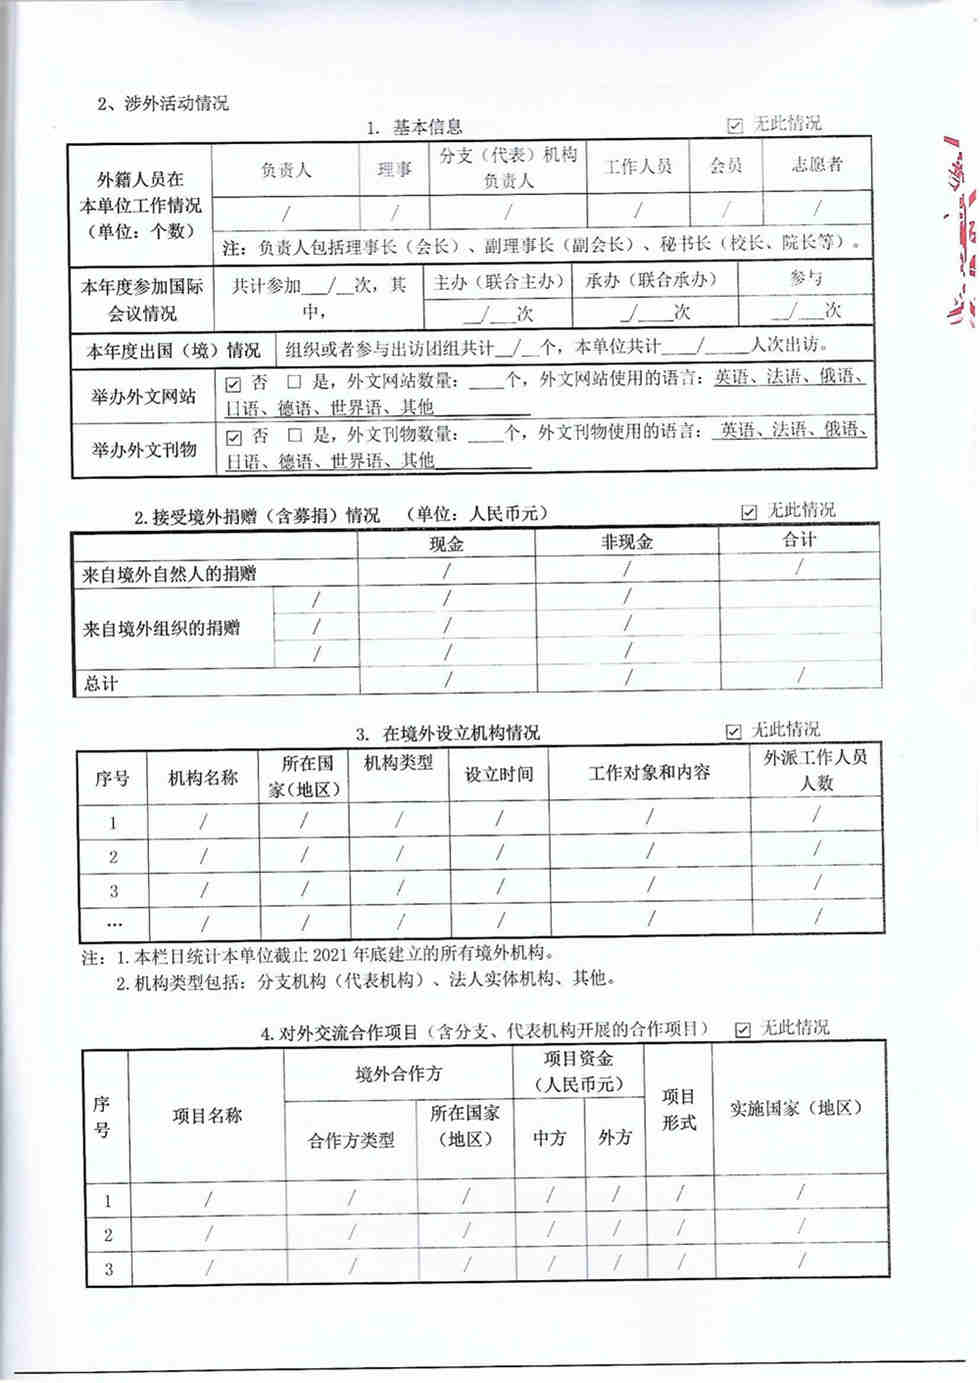 2、涉外活动情况
1. 基本信息 ☑ 无此情况
外籍人员在
本单位工作情况
（单位：个数）
负责人 理事 分支（代表）机构
负责人 工作人员 会员 志愿者
/ / / / / /
注：负责人包括理事长（会长）、副理事长（副会长）、秘书长（校长、院长等）。
本年度参加国际
会议情况
共计参加__/__次，其
中，
主办（联合主办） 承办（联合承办） 参与
__/__次 __/__次 __/__次
本年度出国（境）情况 组织或者参与出访团组共计__/__个，本单位共计___/____人次出访。
举办外文网站
☑ 否 □ 是，外文网站数量：____个，外文网站使用的语言：英语、法语、俄语、
日语、德语、世界语、其他________
举办外文刊物
☑ 否 □ 是，外文刊物数量：____个，外文刊物使用的语言： 英语、法语、俄语、
日语、德语、世界语、其他________
2.接受境外捐赠（含募捐）情况 （单位：人民币元） ☑ 无此情况
现金 非现金 合计
来自境外自然人的捐赠 / / /
来自境外组织的捐赠
/ / /
/ / /
/ / /
总计 / / /
3. 在境外设立机构情况 ☑ 无此情况
序号 机构名称 所在国
家（地区） 机构类型 设立时间 工作对象和内容 外派工作人员
人数
1 / / / / / /
2 / / / / / /
3 / / / / / /
… / / / / / /
注：1.本栏目统计本单位截止 2021 年底建立的所有境外机构。
2.机构类型包括：分支机构（代表机构）、法人实体机构、其他。
4.对外交流合作项目（含分支、代表机构开展的合作项目） ☑ 无此情况
序
号
项目名称
境外合作方
项目资金
（人民币元）
项目
形式
实施国家（地区）
合作方类型 所在国家
（地区） 中方 外方
1 / / / / / / /
2 / / / / / / /
3 / / / / / / /